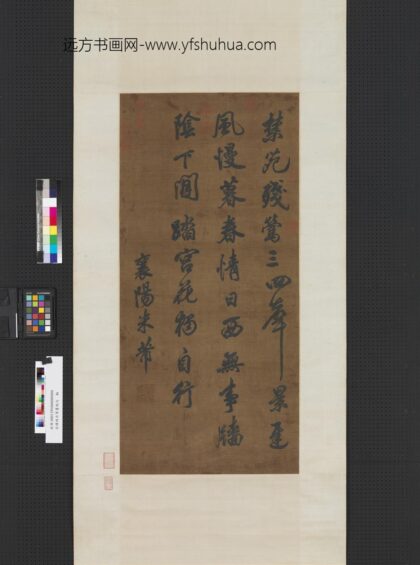 远方书画网-www.yfshuhua.com
禁苑殘鶯三四聲景遲
風慢暮春情日西無事牆
陰下閒踏宮花獨自行
襄陽米芾